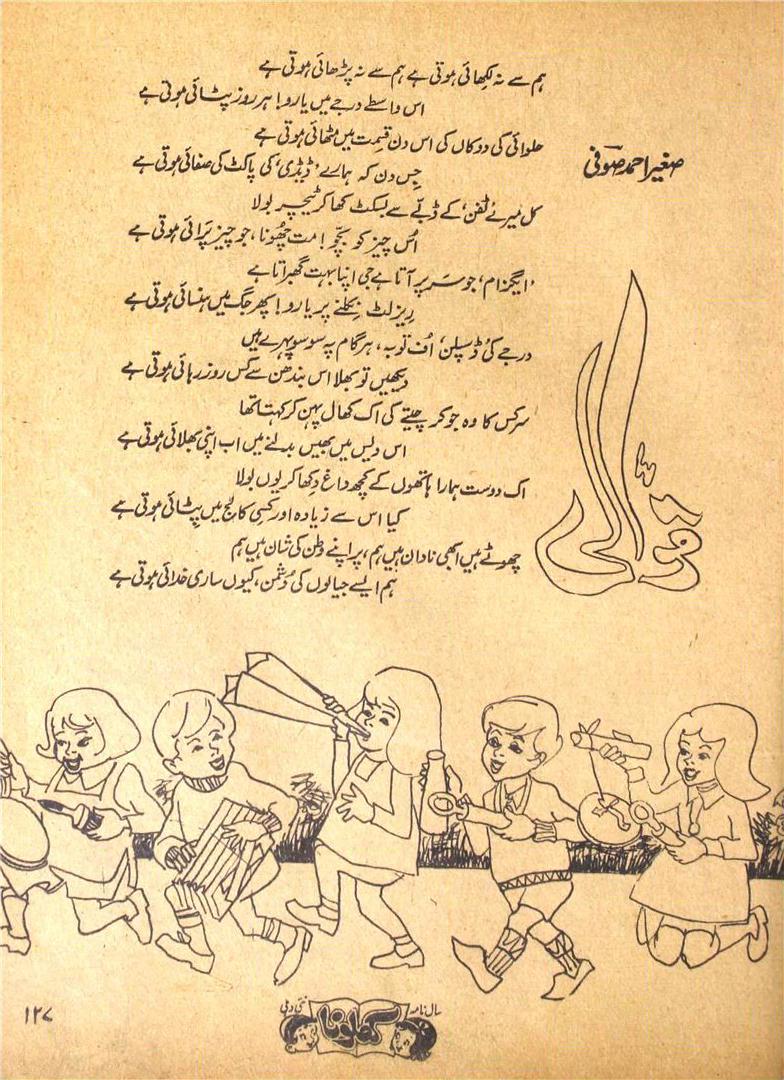 ہم سے نہ لکھائی ہوتی ہے ہم سے نہ پڑھائی ہوتی ہے
اس واسطے درجے میں یارو! ہر روز پٹائی ہوتی ہے
حلوائی کی دوکاں کی اس دن قسمت میں مٹھائی ہوتی ہے
جس دن کہ ہمارے ’ڈیڈی‘ کی پاکٹ کی صفائی ہوتی ہے
صغیر احمد صوفی
کل میرے ’ٹفن‘ کے ڈبّے سے بسکٹ کھا کر ٹیچر بولا
اُس چیز کو بچّو! مت چھُونا، جو چیز پَرائی ہوتی ہے
’ایگزام‘ جو سَر پر آتا ہے جی اپنا بہت گھبراتا ہے
رِیزلٹ نِکلنے پر یارو! پھر جگ میں ہنسائی ہوتی ہے
درجے کی ’ڈسپلن‘ اُف توبہ، ہر گام پہ سو سو پہرے ہیں
دیکھیں تو بھلا اس بندھن سے کس روز رہائی ہوتی ہے
سرکس کا وہ جوکر چیتے کی اک کھال پہن کر کہتا تھا
اس دیس میں بھیس بدلنے میں اب اپنی بھلائی ہوتی ہے
قوّالی
اک دوست ہمارا ہاتھوں کے کچھ داغ دِکھا کر یوں بولا
کیا اس سے زیادہ اور کسی کالج میں پِٹائی ہوتی ہے
چھوٹے ہیں ابھی نادان ہیں ہم، پر اپنے وطن کی شان ہیں ہم
ہم ایسے جیالوں کی دُشمن، کیوں ساری خدائی ہوتی ہے
سال نامہ کھلونا نئی دہلی
۱۲۷